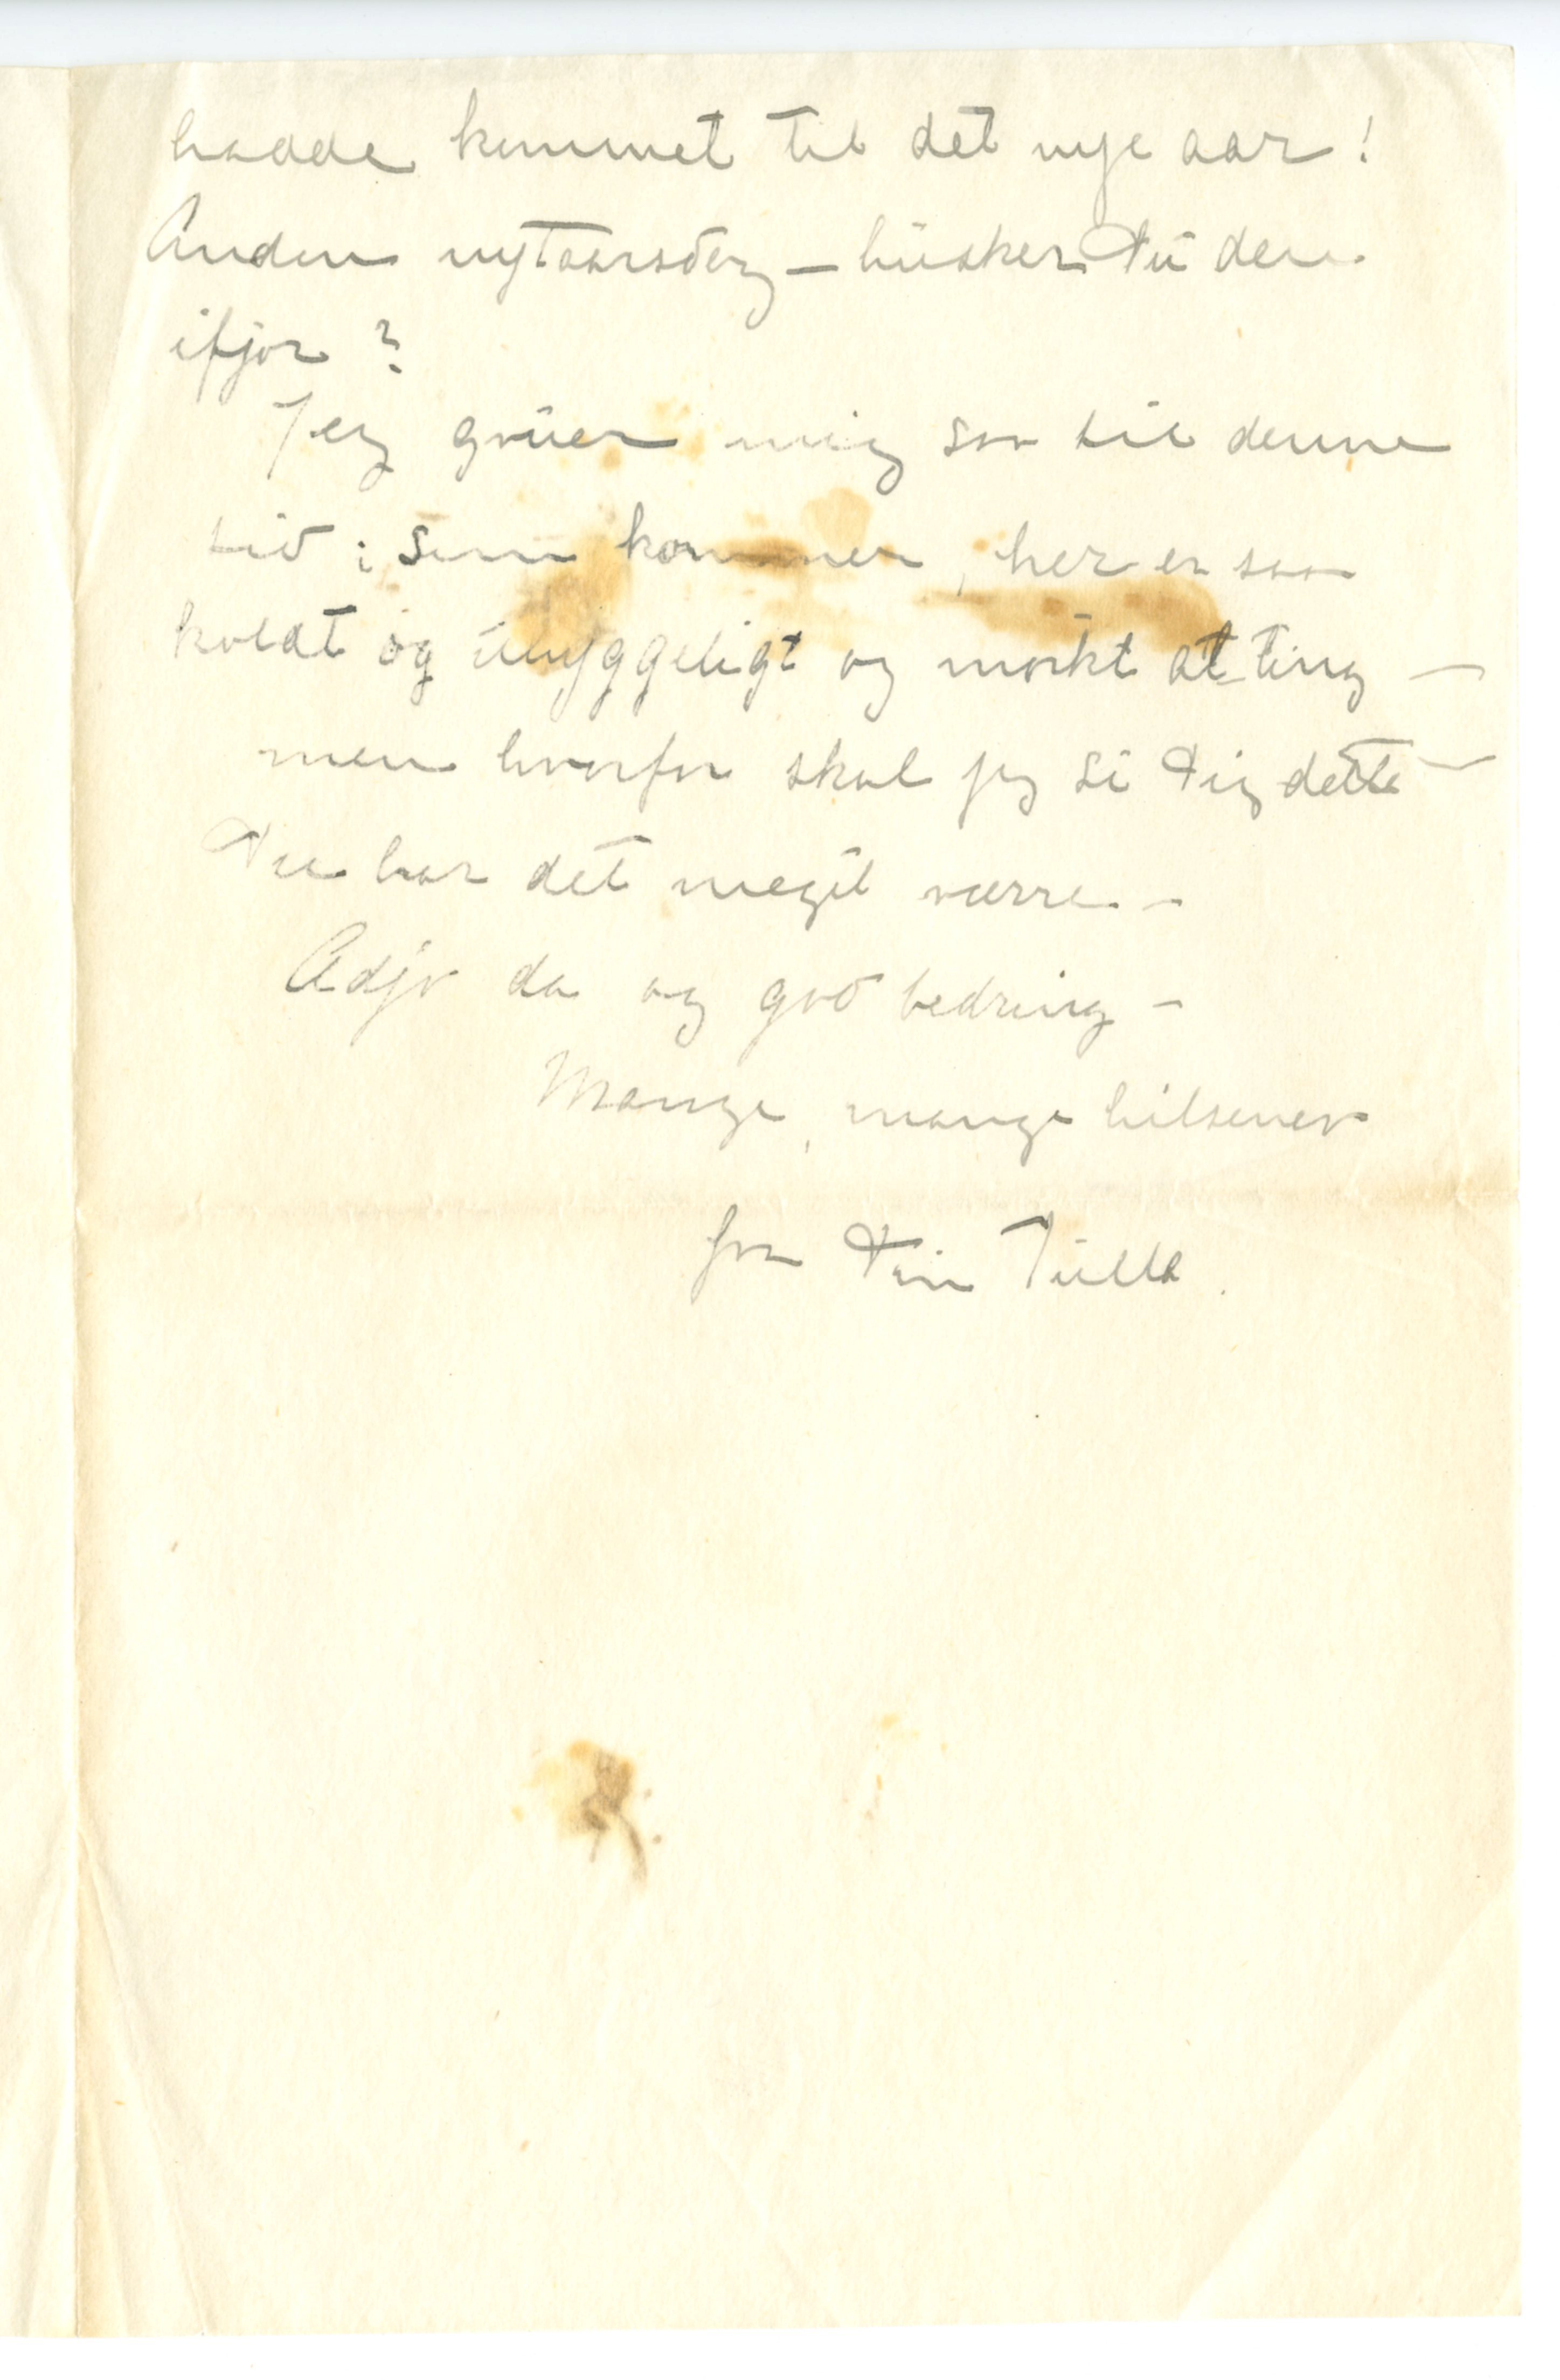 hadde kommet til det nye aar!
Anden nytaarsdag – husker Du den
ifjor?
Jeg gruer mig saa til denne
tid som kommer, her er saa
koldt og uhyggeligt og mørkt alting –
men hvorfor skal jeg si Dig dette –
Du har det meget værre –
Adjø da og god bedring –
Mange, mange hilsener
fra Din Tulla.